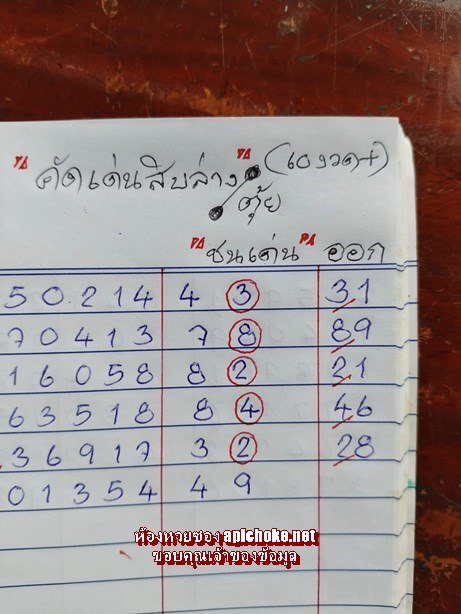 คัดเด่นสิบล่าง (เองวด+)
ตุ้ย
ชนเด่น ออก
50214 4 3 31
70413 7 8 89
16058 8 2 21
63518 8 4 46
36917 3 2 28
01354 4 9
ห้องหวยซอง apichoke.net
ขอบคุณเจ้าของข้อมูล